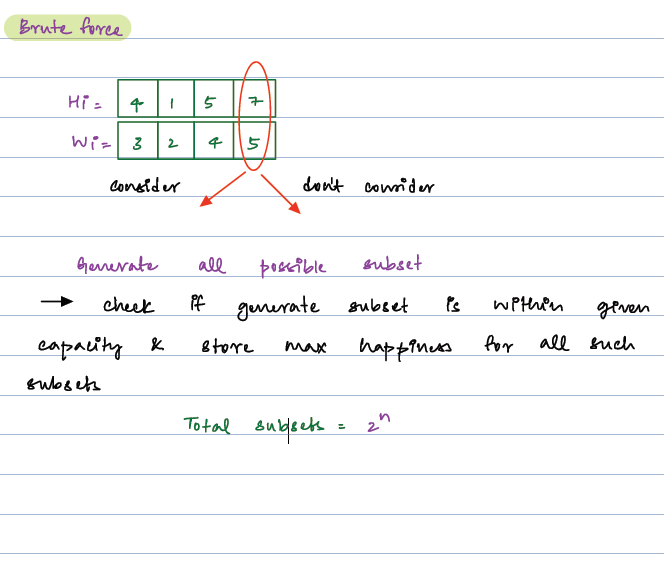 Brute force
Hi = 4 1 5 7
Wi = 3 2 4 5
consider don't consider
Generate all possible subset
→ check if generate subset is within given
capacity & store max happiness for all such
subsets
Total subsets = 2ⁿ